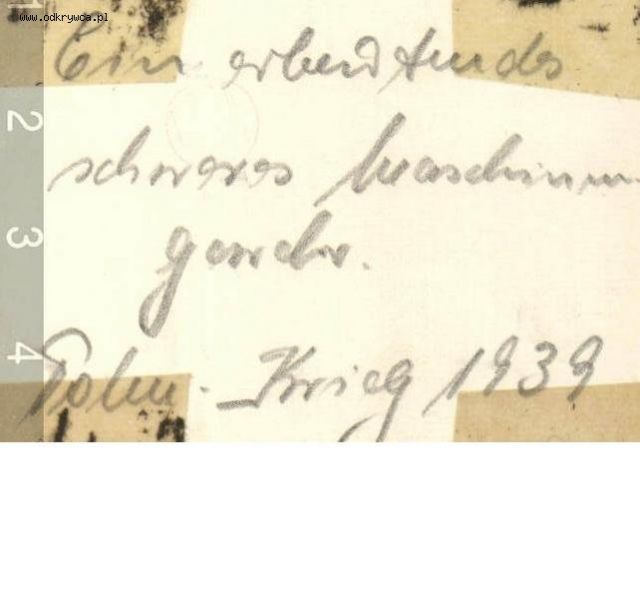 www.odkrywca.pl
Ein
schweres Maschinen-
gewehr.
Polen-Krieg 1939
1
2
3
4